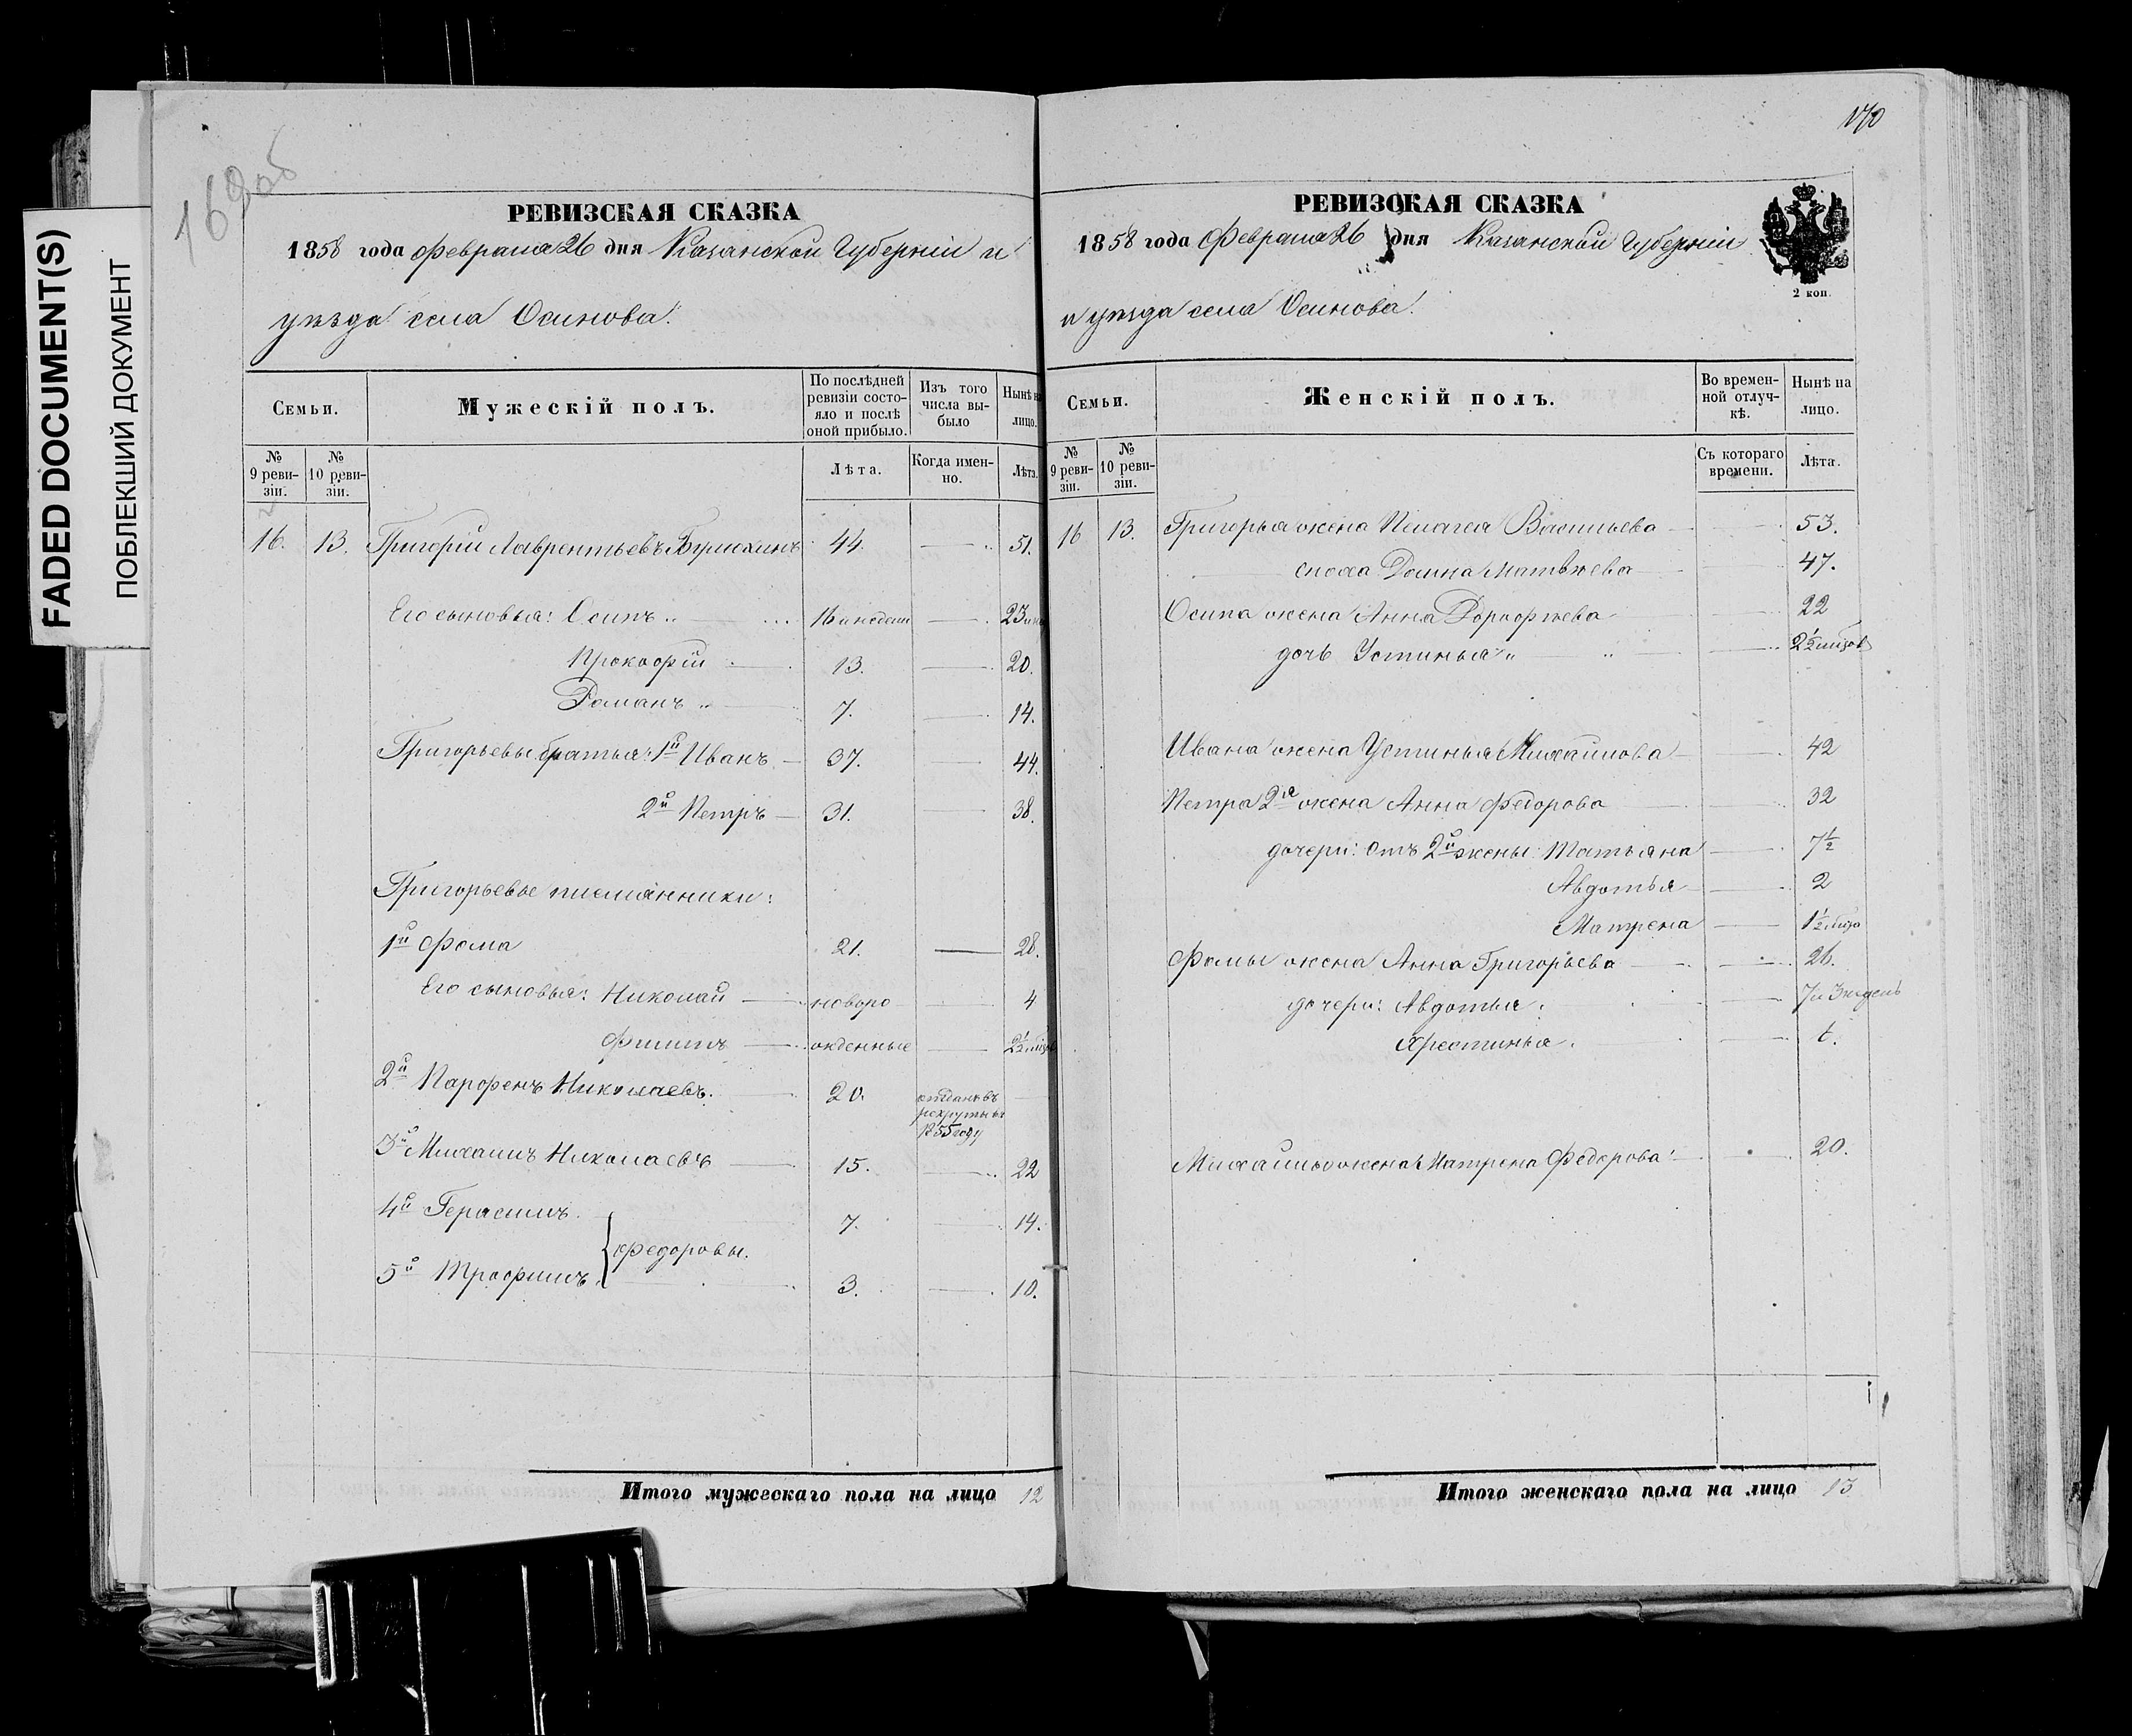 FADED DOCUMENT(S)
ПОБЛЕКШИЙ ДОКУМЕНТ
169об
РЕВИЗСКАЯ СКАЗКА
1858 года Февраля 26 дня Казанской Губерніи и
уѣзда села Осинова.
Семьи.
Мужескій полъ.
По послѣдней ревизіи состояло и послѣ оной прибыло.
Изъ того числа выбыло
Нынѣ на лицо.
№ 9 ревизіи.
№ 10 ревизіи.
Лѣта.
Когда именно.
Лѣта.
16. 13. Григорій Лаврентьевъ 44. 51.
Его сыновья: Осипъ 16 и недели 23
Прокофій 13. 20.
Романъ 7. 14.
Григорьевы братья: 1й Иванъ 37. 44.
2й Петръ 31. 38.
Григорьевы племянники:
1й Фома 21. 28.
Его сыновья: Николай новоро 4
Филипъ жденные 2 1/2
2й Парфенъ Николаевъ. 20. отданъ въ
рекруты въ
1855 году
3й Михаилъ Николаевъ 15. 22
4й Герасимъ 7. 14.
Федоровы.
5й Трофимъ 3. 10.
Итого мужескаго пола на лицо 12
170
РЕВИЗСКАЯ СКАЗКА
1858 года Февраля 26 дня Казанской Губерніи
2 коп.
и уѣзда села Осинова.
Семьи.
Женскій полъ.
Во временной отлучкѣ.
Нынѣ на лицо.
№ 9 ревизіи.
№ 10 ревизіи.
Съ котораго времени.
Лѣта.
16 13. Григорья жена Пелагея Васильева 53.
сноха Домна Матвѣева 47.
Осипа жена Анна 22
дочь Устинья 2 1/2
Ивана жена Устинья Михайлова 42
Петра 2я жена Анна Федорова 32
дочери: отъ 2й жены: Татьяна 7 1/2
Авдотья 2
Матрена 1/2
Фомы жена Анна Григорьева 26.
дочери: Авдотья 7 и 3 недель
Хрестинья 6.
Михайлы жена Матрена Федорова 20.
Итого женскаго пола на лицо 13